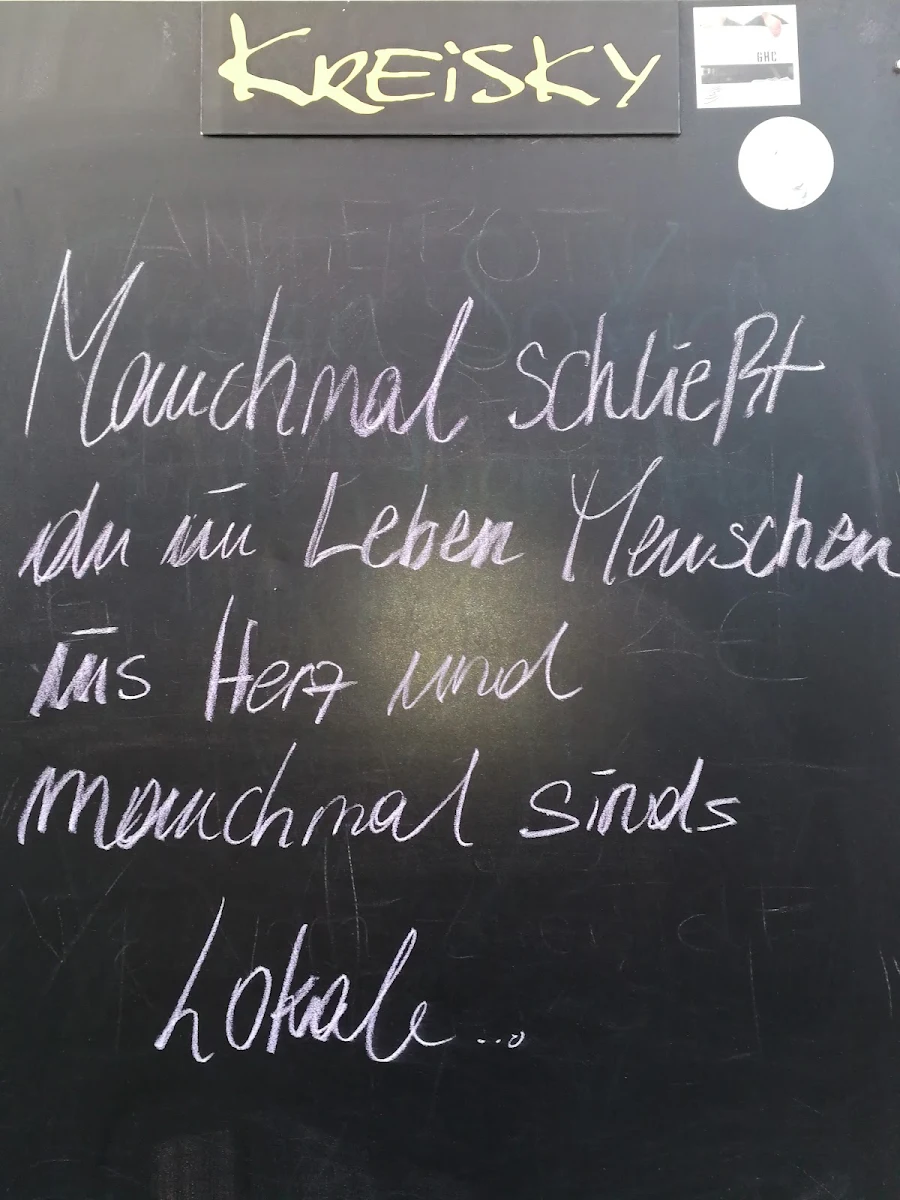 KREiSKY
GHC
Manchmal schließt
du im Leben Menschen
ins Herz und
manchmal sinds
Lokale...